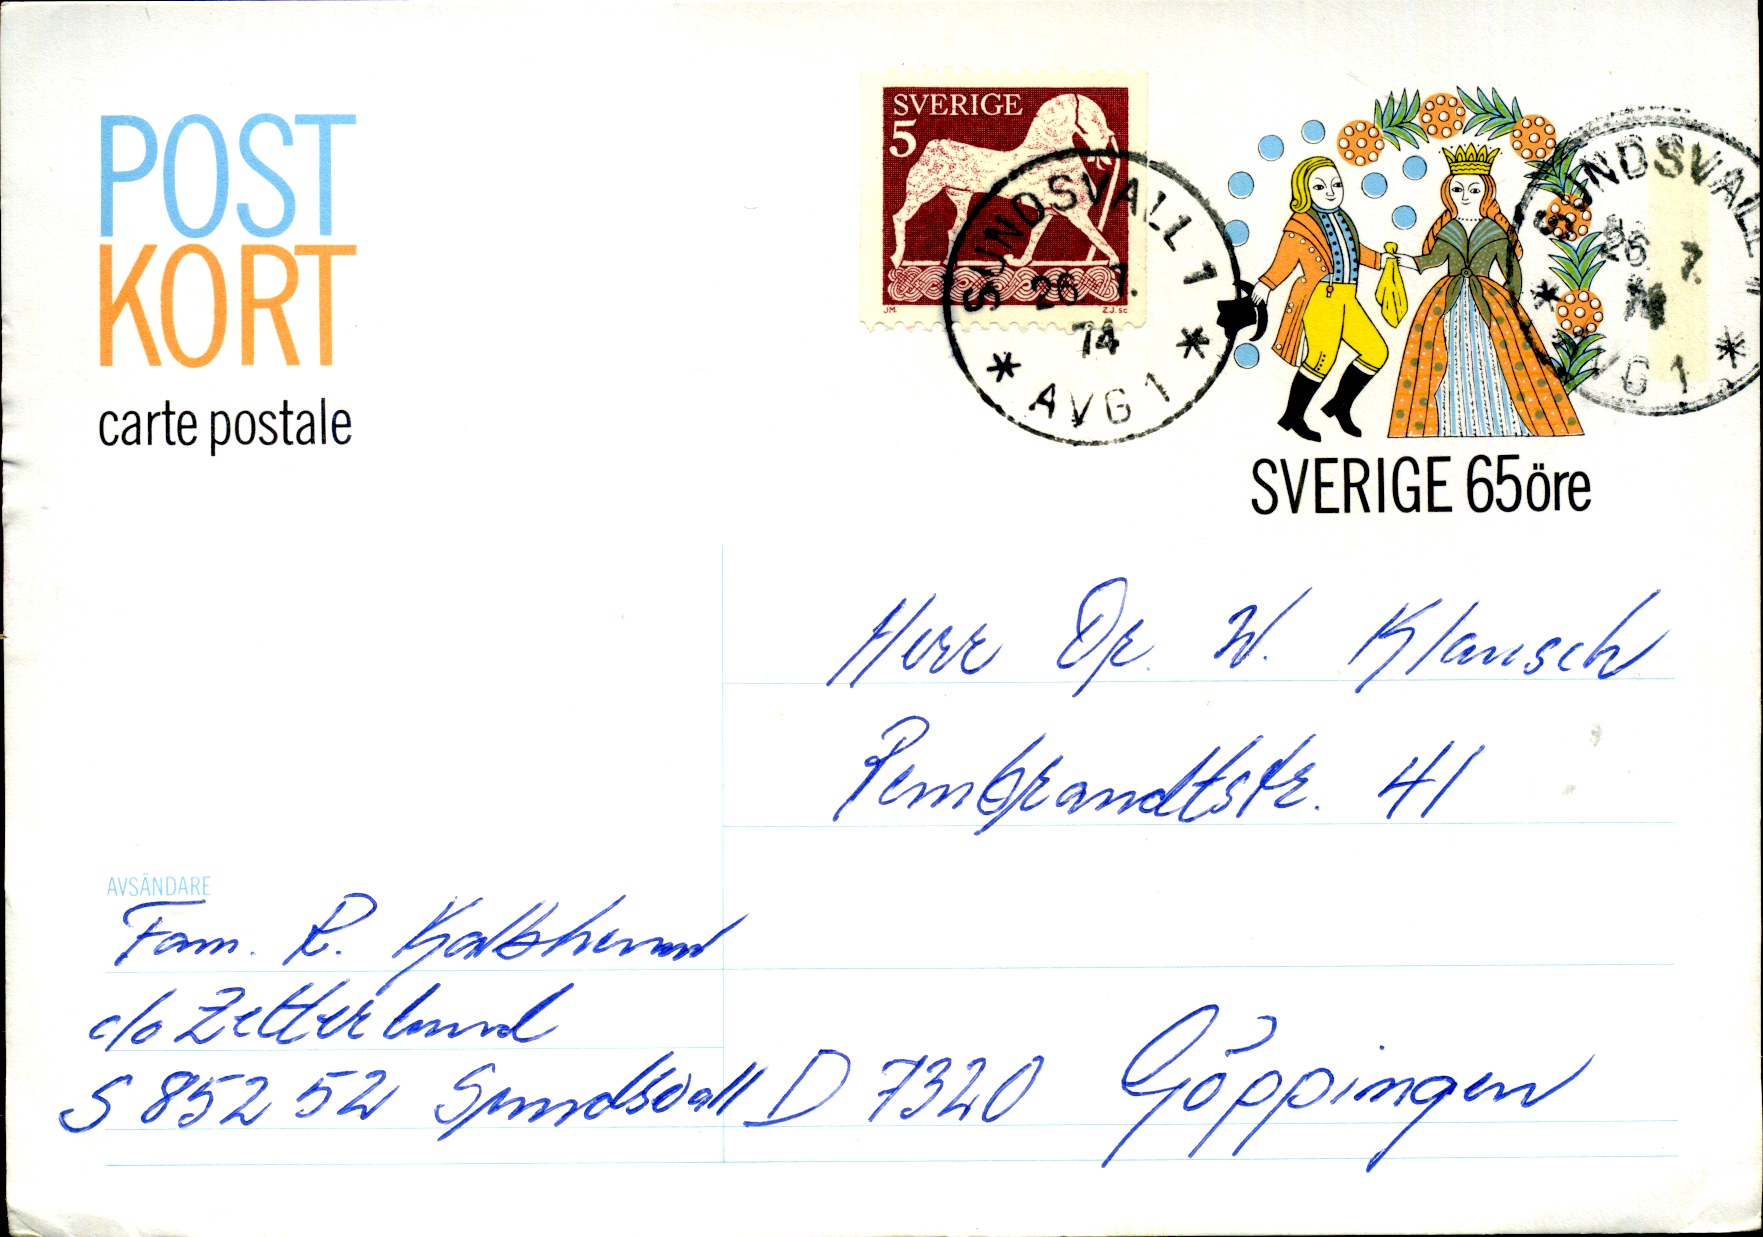 POST
KORT
carte postale
SVERIGE
5
JM
Z.J. sc
SUNDSVALL 1
26 7.
74
* AVG 1 *
SUNDSVALL 1
26 7.
74
* AVG 1 *
SVERIGE 65öre
Herr Dr. W. Klausch
Rembrandtstr. 41
AVSÄNDARE
Fam. R.
c/o Zetterlund
S 852 52 Sundsvall
D 7320 Göppingen